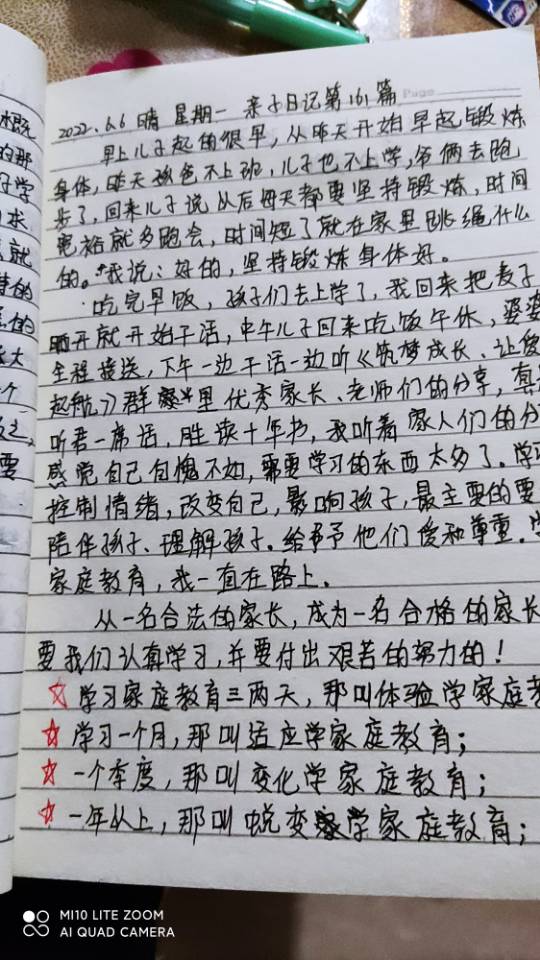 2022.6.6 晴 星期一 亲子日记第161篇
Page
早上儿子起的很早，从昨天开始早起锻炼
身体，昨天孩爸不上班，儿子也不上学，爷俩去跑
步了，回来儿子说以后每天都要坚持锻炼，时间
宽裕就多跑会，时间短了就在家里跳绳什么
的。"我说：好的，坚持锻炼身体好。
吃完早饭，孩子们去上学了，我回来把麦子
晒开就开始干活，中午儿子回来吃饭午休，婆婆
全程接送，下午一边干活一边听《筑梦成长、让爱
起航》群里优秀家长、老师们的分享，真是
听君一席话，胜读十年书，我听着家人们的分
感觉自己自愧不如，需要学习的东西太多了。学习
控制情绪，改变自己，影响孩子，最主要的要
陪伴孩子、理解孩子。给予他们爱和尊重。学
家庭教育，我一直在路上。
从一名合法的家长，成为一名合格的家长
要我们认真学习，并要付出艰苦的努力的！
☆学习家庭教育三两天，那叫体验学家庭教
☆学习一个月，那叫适应学家庭教育；
☆一个季度，那叫变化学家庭教育；
☆一年以上，那叫蜕变学家庭教育；
概
的那
学
求
就
的
的
大
个
要
MI10 LITE ZOOM
AI QUAD CAMERA